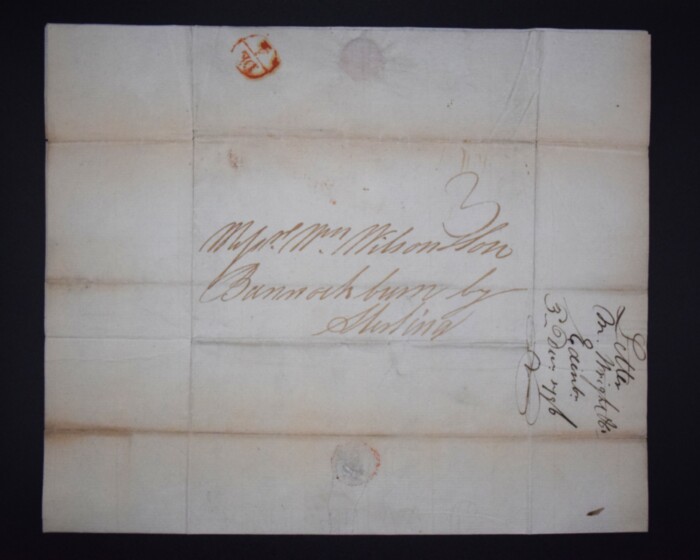 3
Messrs. Wm. Wilson & Son
Bannockburn by
Stirling
Letter
Wright &
Edinbr.
3 Decr. 1796